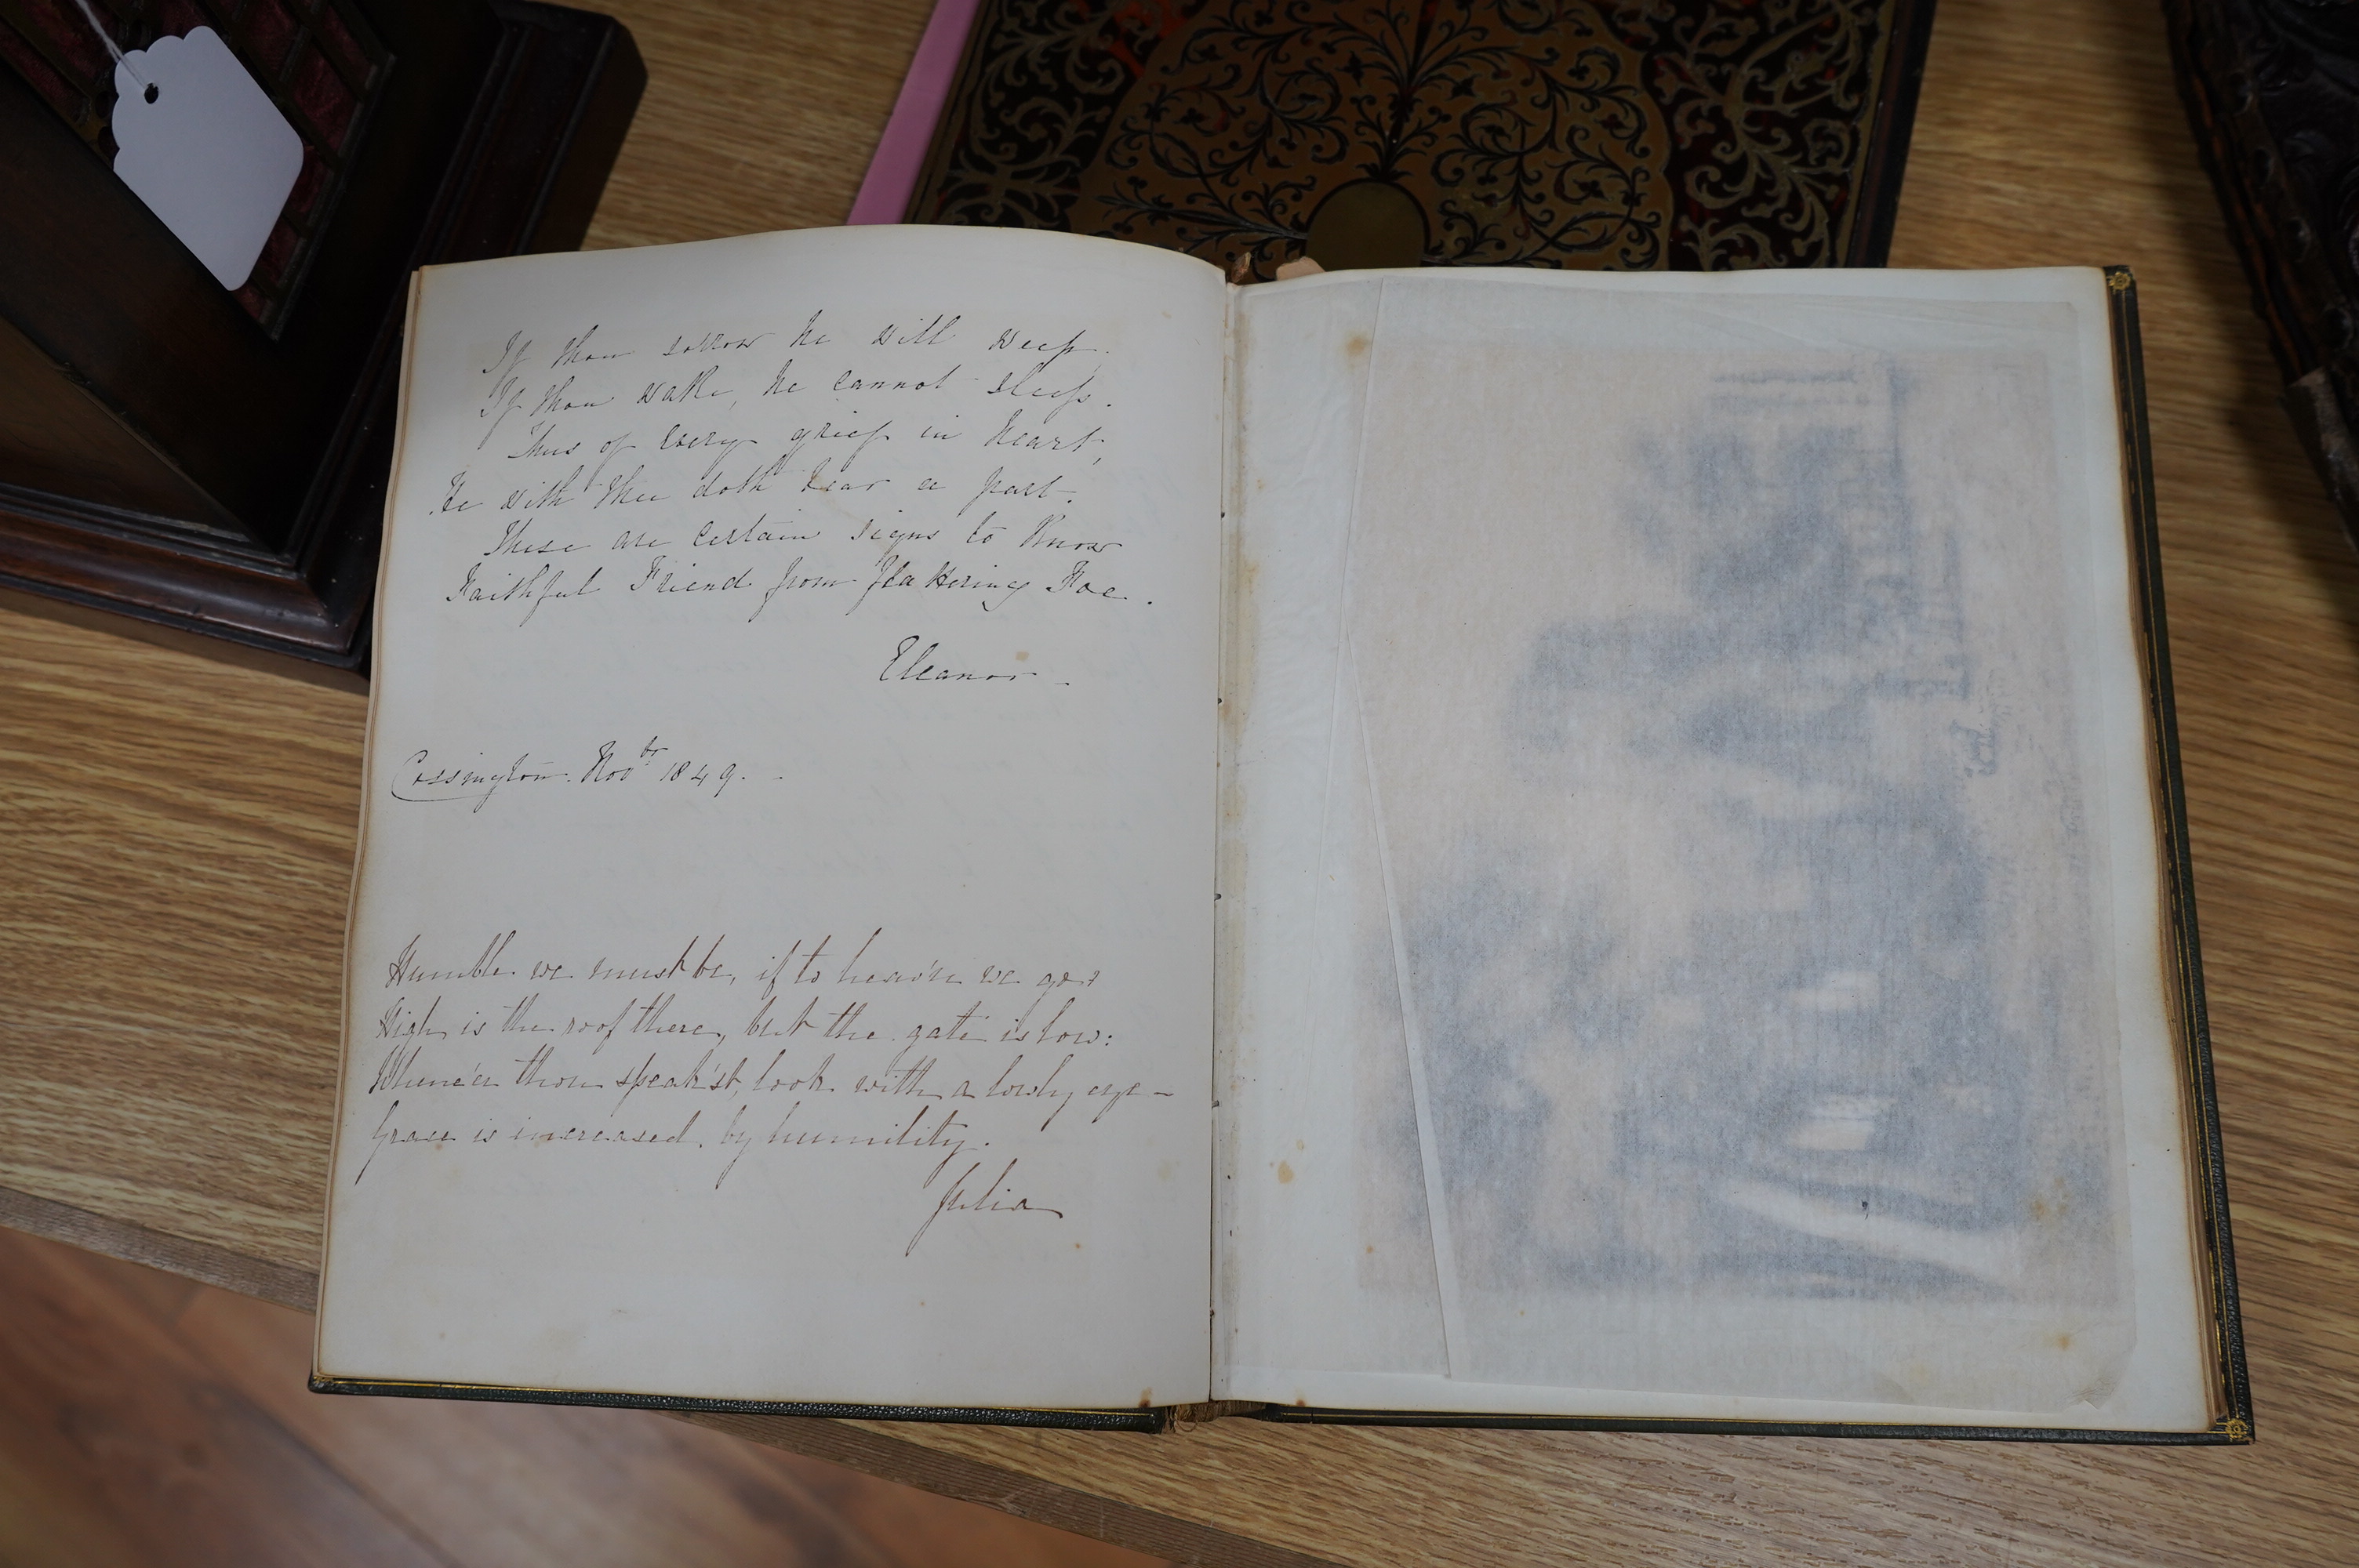 If thou sorrow he will weep.
If thou wake, he cannot sleep.
Thus of every grief in heart,
He with thee doth bear a part.
These are certain signs to know
Faithful Friend from flattering Foe.
Eleanor.
Cossington. Novbr 1849.
Humble we must be, if to heav'n we go:
High is the roof there, but the gate is low:
Whene'er thou speak'st, look with a lowly eye -
Grace is increased by humility.
Julia